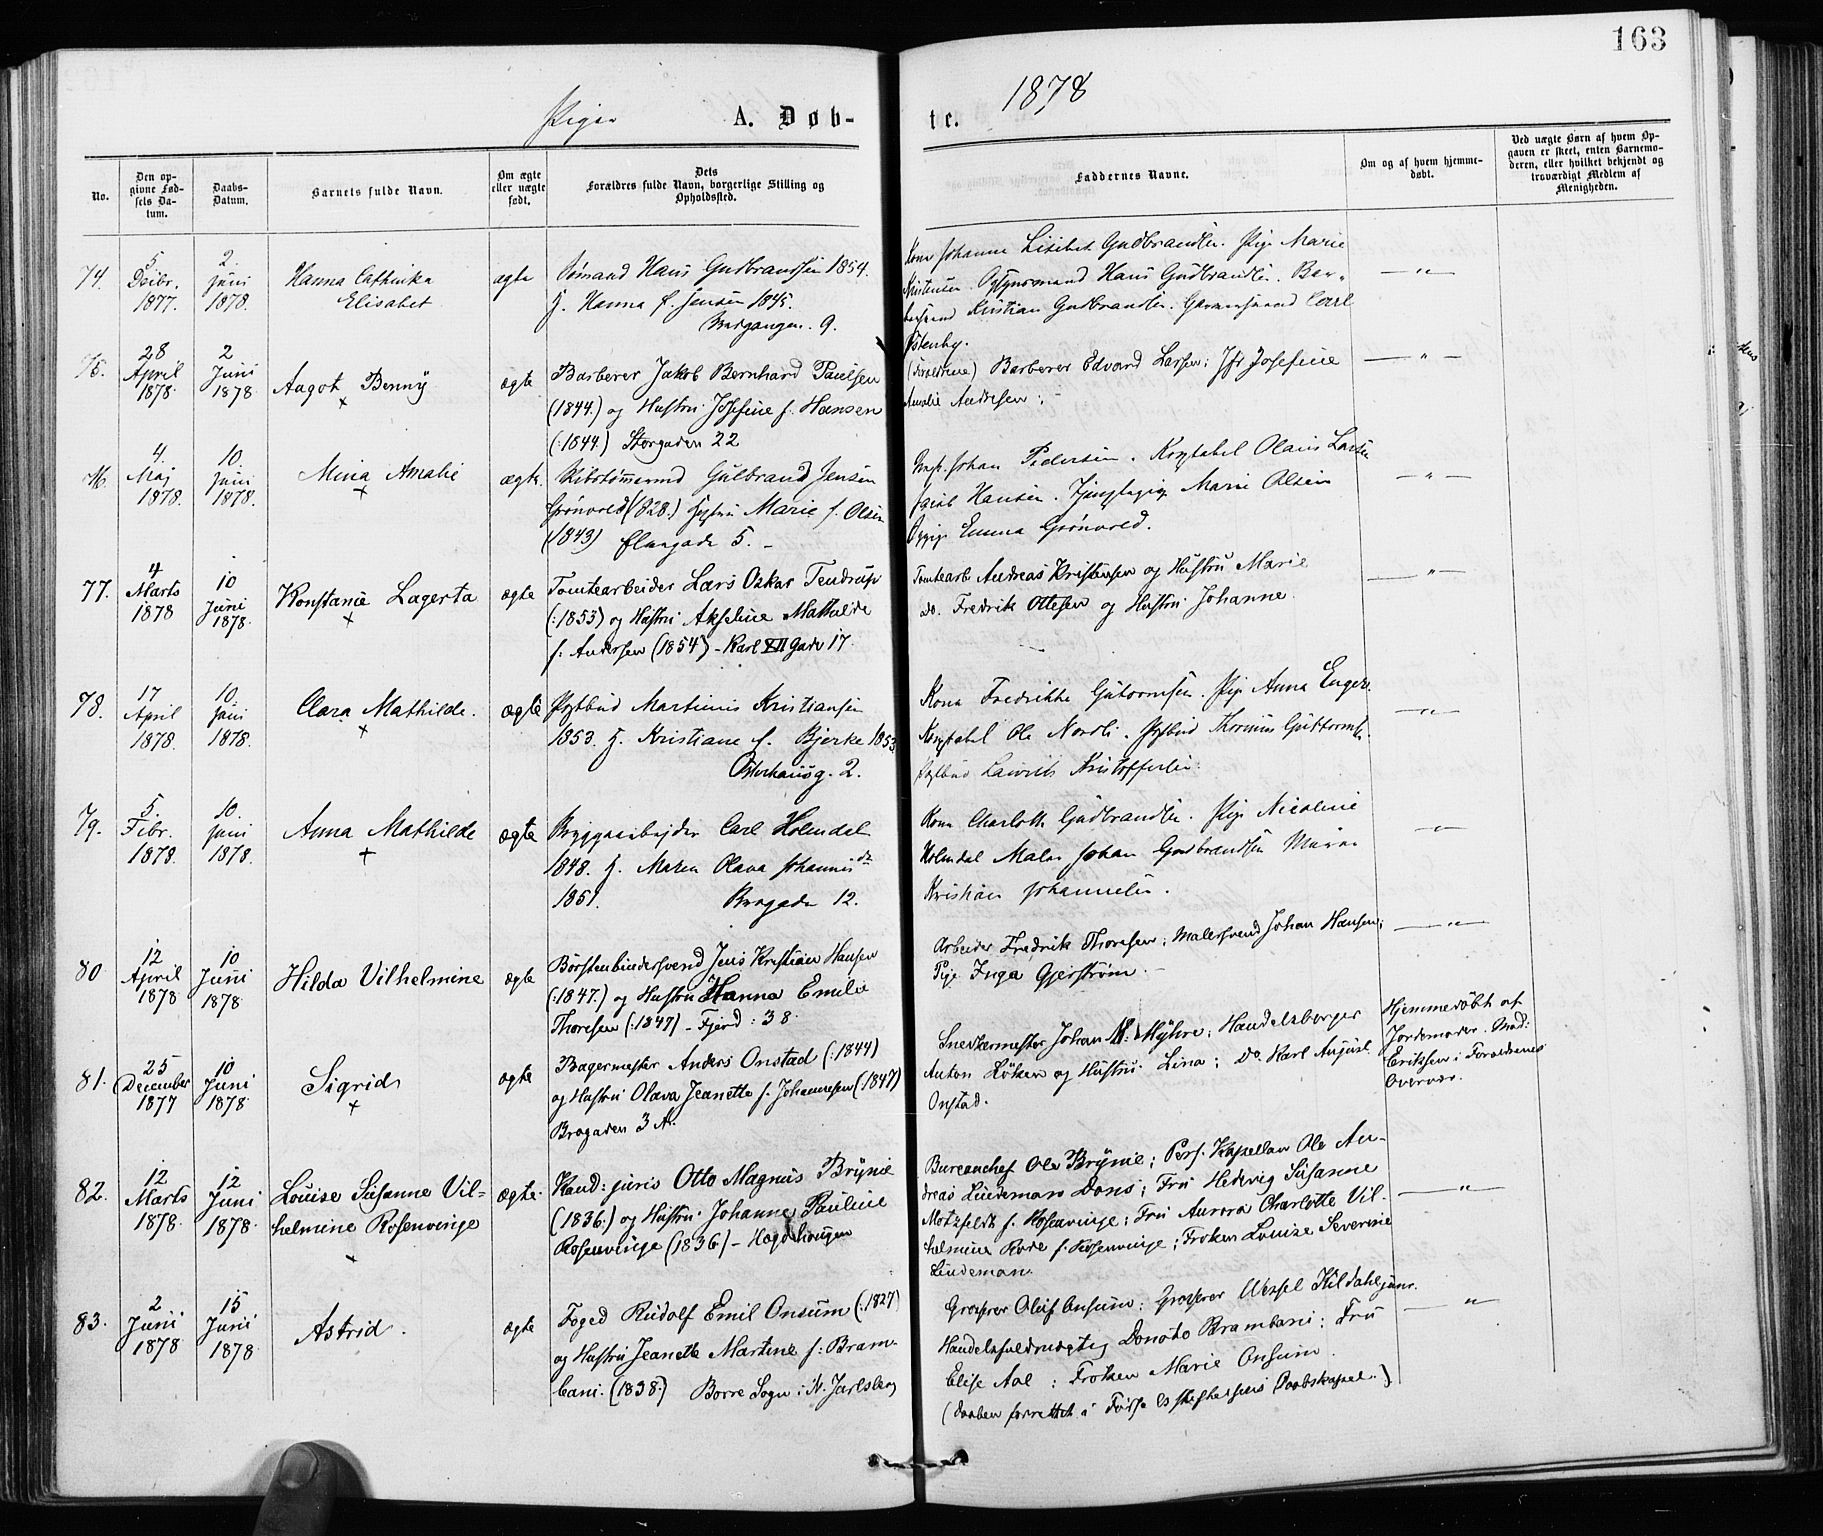 163
1878
Piger
A. Døb-
te.
No.
Den op-
givne Fød-
sels Da-
tum.
Daabs-
Datum.
Barnets fulde Navn.
Om ægte
eller uægte
født.
Dets
Forældres fulde Navn, borgerlige Stilling og
Opholdssted.
Faddernes Navne.
Om og af hvem hjemme-
døbt.
Ved uægte Børn af hvem Op-
gaven er skeet, enten Barnemo-
deren, eller hvilket bekjendt og
troværdigt Medlem af
Menigheden.
74.
5.
1877.
2.
Juni
1878.
Hanna Cathinka
Elisabet
ægte
Sømand Hans Gudbrandsen 1854.
H. Hanna f. Jensen 1845.
9.
Kone Johanne Lisibet Gudbrandsen. Pige Marie
Kristensen Hans Gudbrandsen. Bar-
Kristian Gudbrandsen. Carl
Østenby.
— " —
75.
28
April
1878
2
Juni
1878
Aagot Benny
ægte
Barberer Jakob Bernhard Paulsen
(1844.) og Hustru Josefine f. Hansen
(:1844.) Storgaden 22
(Forældrene) Barberer Edvard Larsen; Jfr Josefine
Amalie Andresen;
— " —
76.
4.
Maj
1878.
10.
Juni
1878.
Mina Amalie
ægte.
Skibstømmermd Gulbrand Jensen
Grønvold (1828.) Hustru Marie f. Olsen
(1843) Elvegade 5. -
Johan Pedersen. Konstabel Olaus Larsen
Jakob Hansen. Tjenestepige Marie Olsen
Emma Grønvold.
— " —
77.
4
Marts
1878
10
Juni
1878.
Konstance Lagerta
ægte
Tomtearbeider Lars Oskar Tendrup
(:1853) og Hustru Akseline Mathilde
f. Andersen (1854) - Karl XII Gade 17.
Tomtearb Andreas Kristensen og Hustru Marie
do. Fredrik Ottesen og Hustru Johanne.
— " —
78.
17
April
1878.
10.
Juni
1878.
Clara Mathilde.
ægte
Postbud Martinus Kristiansen
1853. H. Kristiane f. Bjerke 1853
Osterhausg. 2.
Kone Fredrikke Guttormsen. Pige Anna
Konstabel Ole Nordli. Postbud Guttormsen
Postbud Laurits Kristoffersen.
— " —
79.
5.
Febr.
1878.
10.
Juni
1878.
Anna Mathilde
ægte
Bryggearbejder Carl Holmdal
1848. H. Maren Olava Johannesdr
1851. Brogade 12.
Kone Charlotte Gudbrandsen. Pige Nicoline
Holmdal Maler Johan Gudbrandsen Murer
Kristian Johannesen.
— " —
80
12
April
1878
10
Juni
1878
Hilda Vilhelmine
ægte
Børstenbindersvend Jens Kristian Hansen
(:1847.) og Hustru Hanna Emilie
Thoresen (:1847) - Fjerd: 38.
Arbeider Fredrik Thoresen; Malersvend Johan Hansen;
Pige Inga Gjerstrøm. -
— " —
81.
25
December
1877
10
Juni
1878
Sigrid
ægte
Bagermester Anders Onstad (:1844)
og Hustru Olava Jeanette f. Johannesen (:1847)
Brogaden 3 A.
Snedkermester Johan M: Myhre; Handelsborger
Anton Løken og Hustru Lina; Do. Karl August
Onstad.
Hjemmedøbt af
Jordemoder Mad:
Eriksen i Forældrenes
Overvær.
82.
12
Marts
1878.
12
Juni
1878.
Louise Susanne Vil-
helmine Rosenvinge
ægte.
Kand: juris Otto Magnus Brynie
(1836.) og Hustru Johanne Pauline
Rosenvinge (1836) - Hægdehougen
Bureauchef Ole Brynie; Pers. Kapellan Ole An-
dreas Lindeman Dons; Fru Hedevig Susanne
Motzfeldt f. Rosenvinge; Fru Aurora Charlotte Vil-
helmine Rode f. Rosenvinge; Frøken Louise Severine
Lindeman.
— " —
83.
2
Juni
1878
15
Juni
1878
Astrid.
ægte
Foged Rudolf Emil Onsum (:1827)
og Hustru Jeanette Martine f: Bram-
bani. (1838.) Borre Sogn i N. Jarlsberg
Grosserer Oluf Onsum; Grosserer Wessel Kildahl jun.
Handelsfuldmægtig Donato Brambani; Fru
Elise Aal; Frøken Marie Onsum.
(Daaben forrettet i Daabskapel.)
— " —